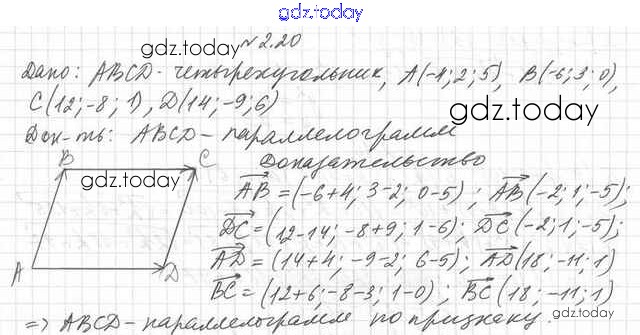 gdz.today
gdz.today №2.20
Дано: ABCD - четырехугольник, A(-4; 2; 5), B(-6; 3; 0),
C(12; -8; 1), D(14; -9; 6)
gdz.today
Док-ть: ABCD - параллелограмм
Доказательство
B C
gdz.today
AB = (-6+4; 3-2; 0-5); AB(-2; 1; -5);
DC = (12-14; -8+9; 1-6); DC(-2; 1; -5);
A D
AD = (14+4; -9-2; 6-5); AD(18; -11; 1)
BC = (12+6; -8-3; 1-0); BC(18; -11; 1)
=> ABCD - параллелограмм по признаку.
gdz.today